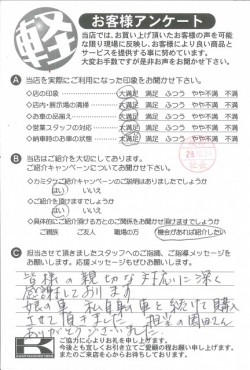 軽
お客様アンケート
当店では、お買い上げ頂いたお客様の声を可能
な限り現場に反映し、お客様により良い商品と
サービスを提供する事に努めています。
大変お手数ですが是非お声をお聞かせ下さい。
A 当店を実際にご利用になった印象をお聞かせ下さい。
◇店の印象 大満足 満足 ふつう やや不満 不満
◇店内・展示場の清掃 大満足 満足 ふつう やや不満 不満
◇お車の品揃え 大満足 満足 ふつう やや不満 不満
◇営業スタッフの対応 大満足 満足 ふつう やや不満 不満
◇納車時のお車の状態 大満足 満足 ふつう やや不満 不満
B 当店はご紹介を大切にしております。
ご紹介キャンペーンについてお聞かせ下さい。
◇カミタウご紹介キャンペーンのご説明はありましたでしょうか
はい いいえ
◇ご紹介を頂けますでしょうか
はい いいえ
◇具体的にご紹介頂ける方とのご関係をお聞かせ頂けますでしょうか
ご親類 ご友人 職場の方 機会があれば紹介したい
C 担当させて頂きましたスタッフへのご指摘、ご指導メッセージを
お願いします。応援メッセージもぜひお願いします。
皆様の親切な対応に深く
感謝しております
娘の車 私自転車と続けて購入
させて頂きました 担当の園田さん
ありがとうございました
ご協力に心よりお礼を申し上げます。
今後とも宜しくお引き立てご愛顧の程お願い申し上げます。
またのご来店を心からお待ちしております。